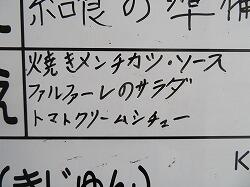 和食の準備
焼きメンチカツ・ソース
ファルファーレのサラダ
トマトクリームシチュー
え
(きじゅん)
K